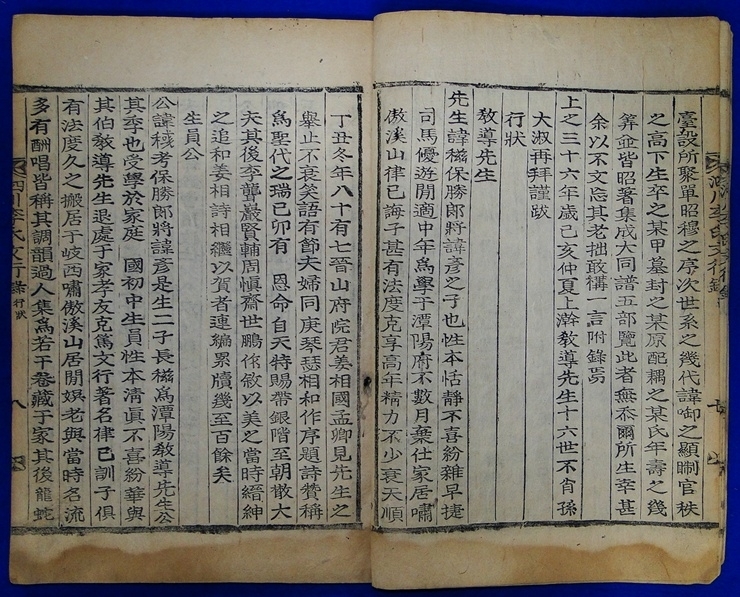 臺設所聚單昭穆之序次世系之幾代諱啣之顯晦官秩
之高下生卒之某甲墓封之某原配耦之某氏年壽之幾
筭並皆昭著集成大同譜五部覽此者無忝爾所生幸甚
余以不文忘其老拙敢構一言附錄焉
上之三十六年歲己亥仲夏上澣敎導先生十六世不肖孫
大淑再拜謹跋
行狀
敎導先生
先生諱稵保勝郞將諱彥之子也性本恬靜不喜紛雜早捷
司馬優遊閒適中年爲學于潭陽府不數月棄仕家居嘯
傲溪山律己誨子甚有法度克享高年精力不少衰天順
丁丑冬年八十有七晉山府院君姜相國孟卿見先生之
擧止不衰笑語有節夫婦同庚琴瑟相和作序題詩賛稱
爲聖代之瑞己卯有 恩命自天特賜帶銀階至朝散大
夫其後李聾巖賢輔周愼齋世鵬俻敘以美之當時縉紳
之追和姜相詩相繼以賀者連編累牘幾至百餘矣
生員公
公諱 考保勝郞將諱彥是生二子長稵爲潭陽敎導先生公
其季也受學於家庭 國初中生員性本淸眞不喜紛華與
其伯敎導先生退處于家孝友克篤文行著名律己訓子俱
有法度久之搬居于岐西嘯傲溪山居閒娛老與當時名流
多有酬唱皆稱其調韻過人集爲若干卷藏于家其後龍蛇
泗川李氏文行錄 行狀 八